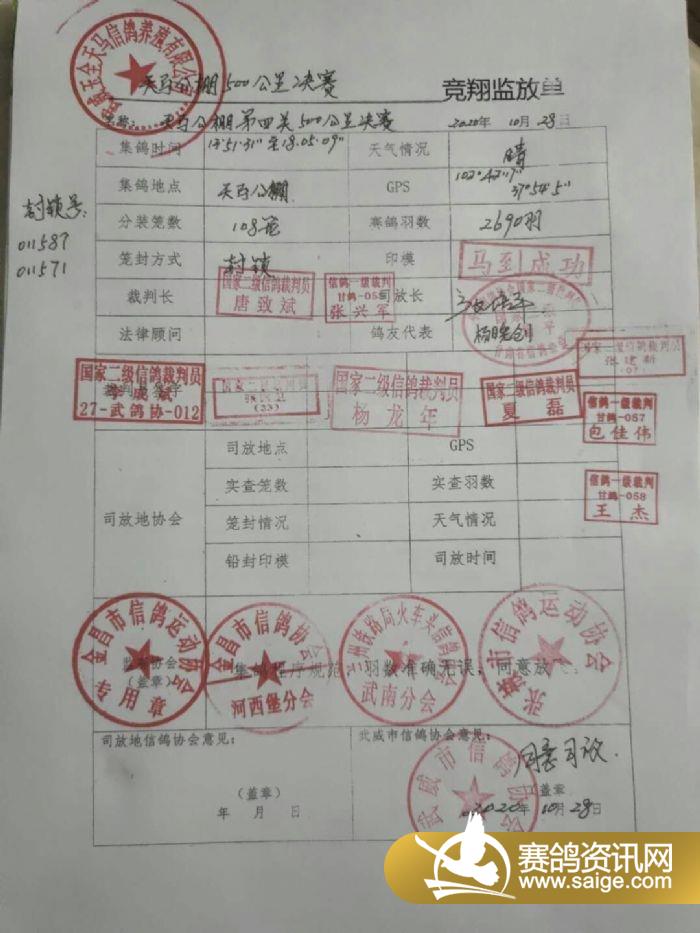 武威金天马信鸽养殖有限公司
天马公棚500公里决赛 竞翔监放单
天马公棚第四关500公里决赛 2020年10月28日
集鸽时间 17:51:31"至18:05:09" 天气情况 晴
集鸽地点 天马公棚 GPS 102°42'7" 37°54'5"
封锁号:
011587
011571
分装笼数 108笼 赛鸽羽数 2690羽
笼封方式 封锁 印模 马到成功
裁判长 国家二级信鸽裁判员 唐致斌 信鸽一级裁判 甘鸽-055 张兴军 司放长
法律顾问 鸽友代表 杨晓创
国家二级信鸽裁判员
张建新
国家二级信鸽裁判员
李成斌
27-武鸽协-012
(23)
国家二级信鸽裁判员
杨龙年
国家二级信鸽裁判员
夏磊
信鸽一级裁判
甘鸽-057
包佳伟
司放地协会
司放地点 GPS
实查笼数 实查羽数
信鸽一级裁判
甘鸽-058
王杰
笼封情况 天气情况
铅封印模 司放时间
金昌市信鸽运动协会
专用章
金昌市信鸽协会
河西堡分会
兰州铁路局火车头信鸽协会
武南分会
张掖市信鸽运动协会
监放协会
(盖章)
集鸽程序规范,羽数准确无误,同意放
司放地信鸽协会意见: 武威市信鸽协会意见:
同意司放.
武威市信鸽协会
(盖章) (盖章)
年 月 日 2020年10月28日
赛鸽资讯网
www.saige.com